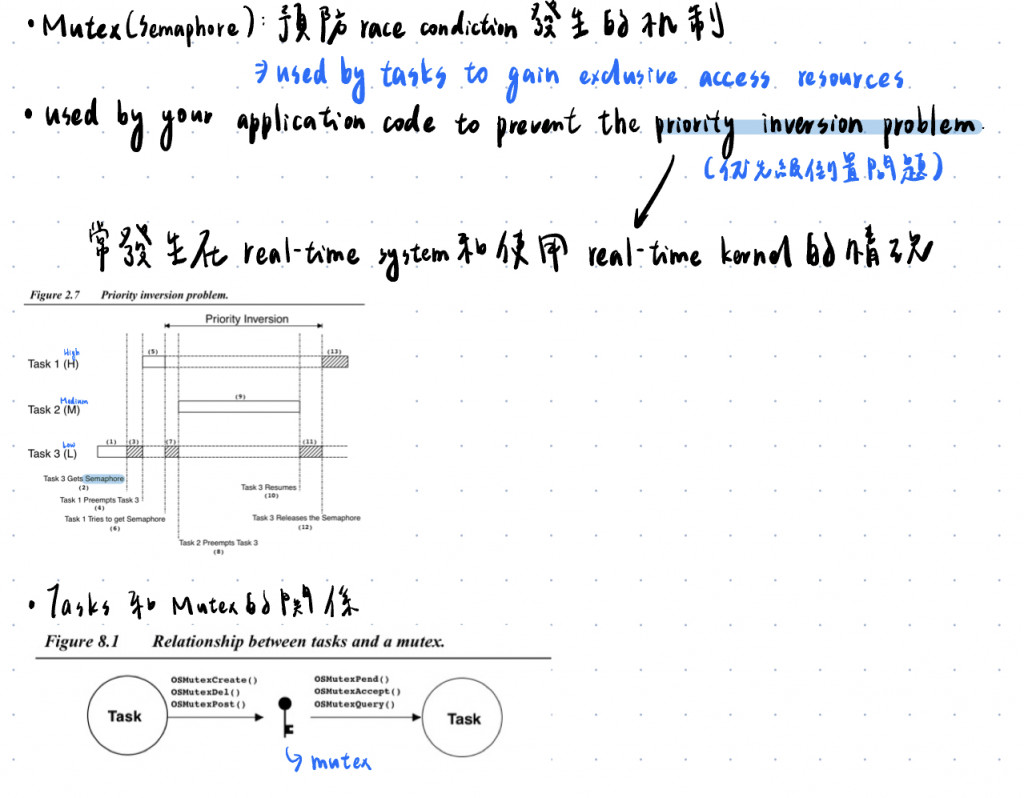 • Mutex (Semaphore): 預防 race condiction 發生的机制
⇒ used by tasks to gain exclusive access resources
• used by your application code to prevent the priority inversion problem.
(优先級倒置問題)
常發生在 real-time system 和使用 real-time kernel 的情況
Figure 2.7 Priority inversion problem.
Priority Inversion
High
(5) (13)
Task 1 (H)
Medium
(9)
Task 2 (M)
Low
(1) (3) (7) (11)
Task 3 (L)
Task 3 Gets Semaphore
(2)
Task 3 Resumes
(10)
Task 1 Preempts Task 3
(4)
Task 1 Tries to get Semaphore
(6)
Task 3 Releases the Semaphore
(12)
Task 2 Preempts Task 3
(8)
• Tasks 和 Mutex 的関係
Figure 8.1 Relationship between tasks and a mutex.
OSMutexCreate()
OSMutexDel()
OSMutexPost()
OSMutexPend()
OSMutexAccept()
OSMutexQuery()
Task
Task
mutex